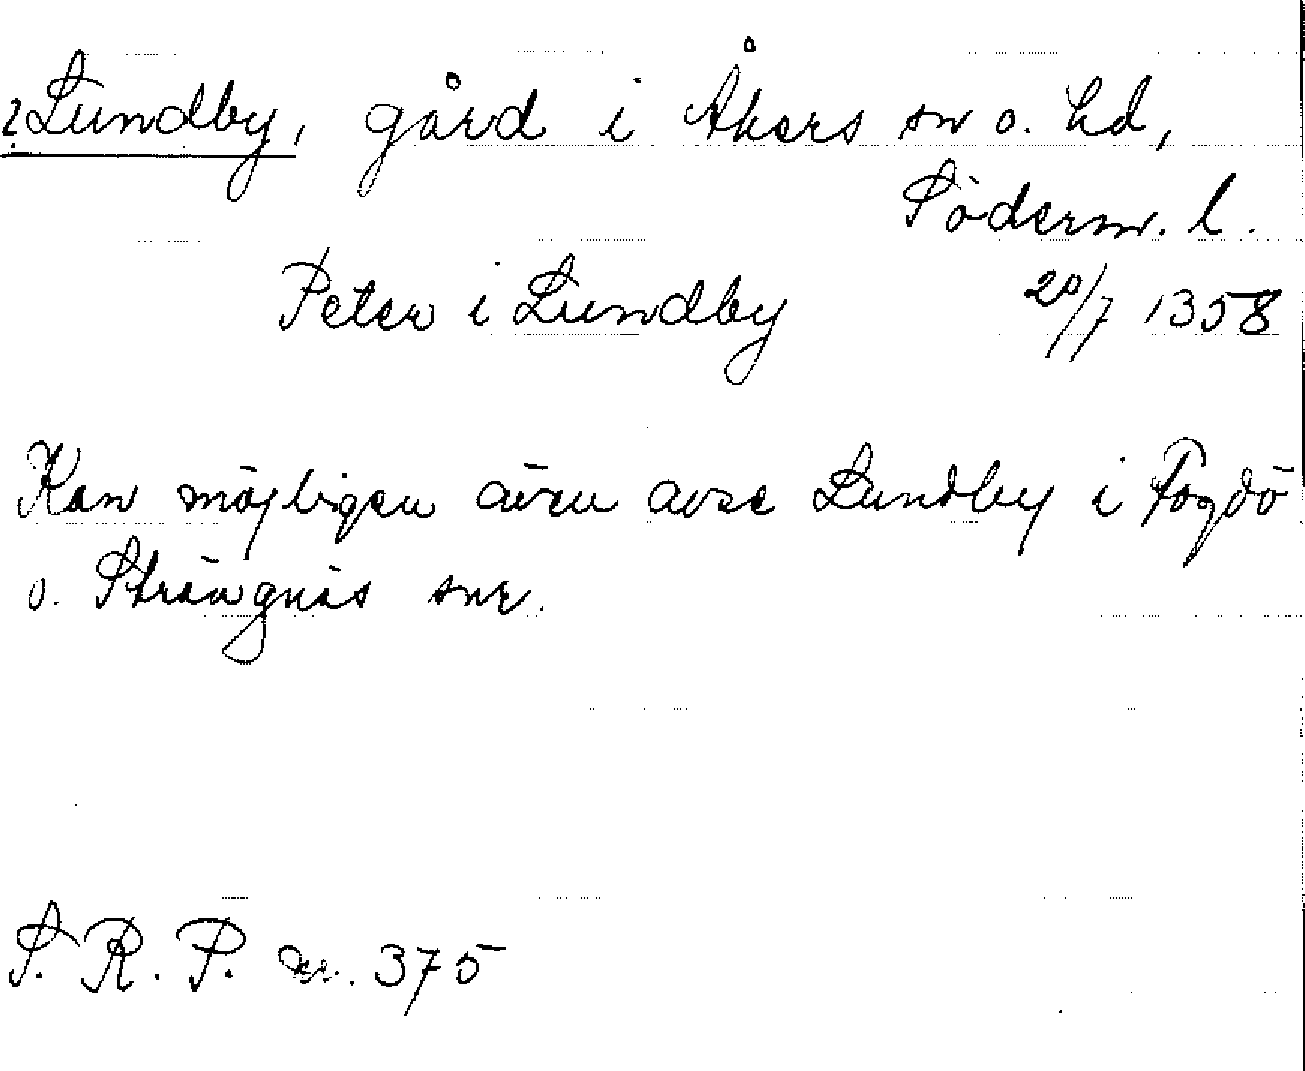 ?Lundby, gård i Åkers sn o. hd,
Söderm. l.
Peter i Lundby 20/7 1358
Kan möjligen även avse Lundby i Fogdö
o. Strängnäs snr.
S. R. P. nr. 375